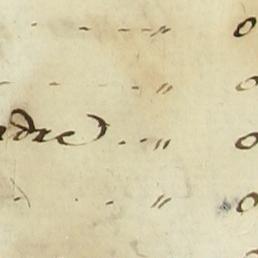 - - - " 0
- - - " 0
ndre) . - - " 0
- . . " 0